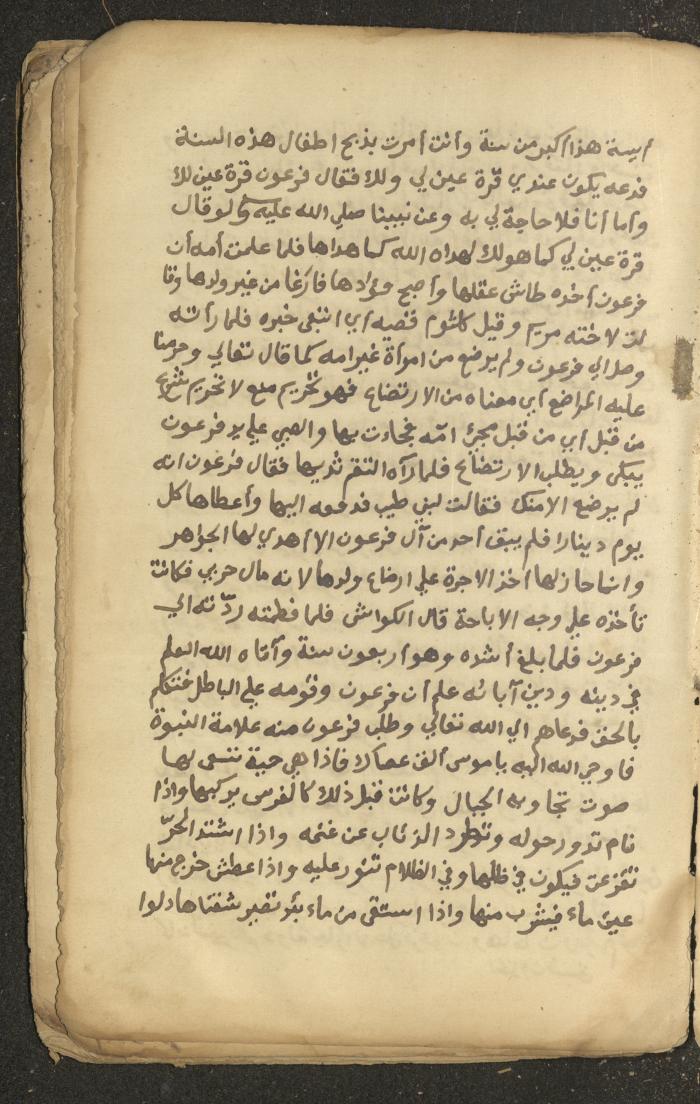 أيسة هذا أكبر من سنة وأنت أمرت بذبح اطفال هذه السنة
فدعه يكون عندي قرة عين لي ولك فقال فرعون قرة عين لك
وأما أنا فلا حاجة لي به وعن نبينا صلي الله عليه وسلم لو قال
قرة عين لي كما هو لك لهداه الله كما هداها فلما علمت أمه أن
فرعون أخذه طاش عقلها وأصبح فؤادها فارغا من غير ولدها وقا
لت لاخته مريم وقيل كلثوم قصيه أي اتبعي خبره فلما رأته
وصل الي فرعون ولم يرضع من امرأة غير امه كما قال تعالي وحرمنا
عليه المراضع أي معناه من الارتضاع فهو تحريم منع لا تحريم شرع
من قبل أي من قبل مجئ امّه فجاءت بها والصبي علي يد فرعون
يبكي ويطلب الارتضاع فلما رآه التقم ثديها فقال فرعون انه
لم يرضع الا منك فقالت لبني طيب فدفعه اليها وأعطاها كل
يوم دينارا فلم يبق أحد من آل فرعون الا أهدي لها الجواهر
وانما جاز لها أخذ الاجرة علي ارضاع ولدها لانه مال حربي فكانت
تأخذه علي وجه الاباحة قال الكواشي فلما فطمته ردّته الي
فرعون فلما بلغ أشده وهو أربعون سنة وأتاه الله العلم
في دينه ودين آبائه علم أن فرعون وقومه علي الباطل فتكلم
بالحق فدعاهم الي الله تعالي وطلب فرعون منه علامة النبوة
فاوحي الله اليه يا موسي ألق عصاك فاذا هي حية تسعي لها
صوت تجاوبه الجبال وكانت قبل ذلك كالفرس يركبها واذا
نام تدور حوله وتطرد الذئاب عن غنمه واذا اشتد الحرّ
تفرعت فيكون في ظلها وفي الظلام تنور عليه واذا عطش خرج منها
عين ماء فيشرب منها واذا استقي من ماء بئر تصير شفتاها دلوا